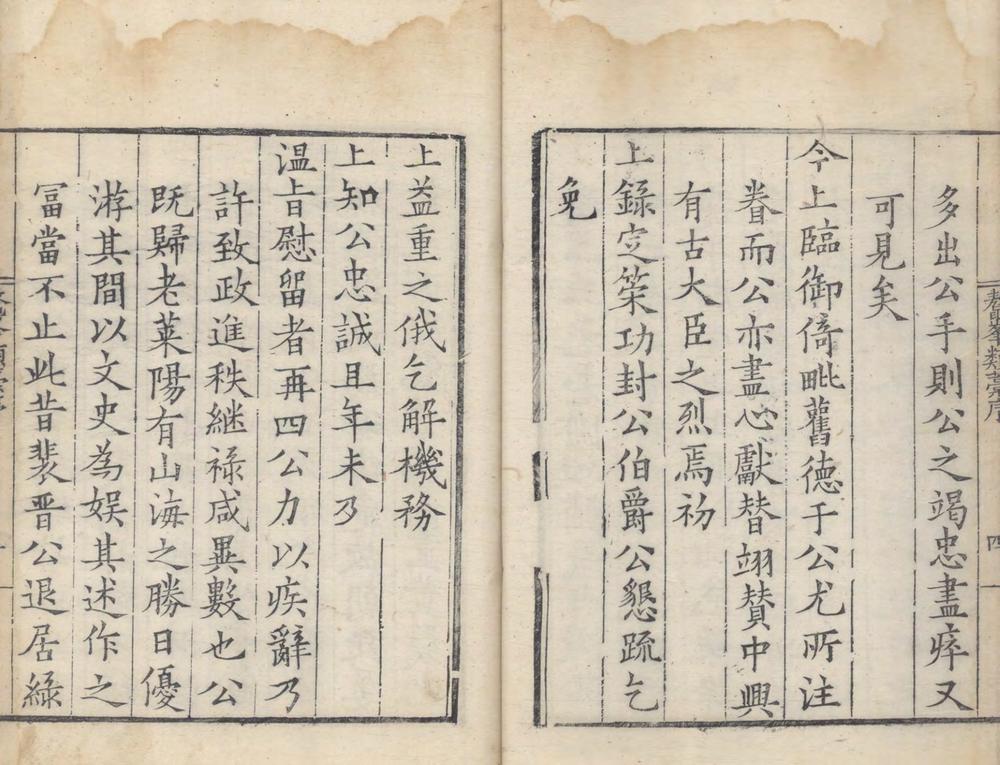 多出公手則公之竭忠盡瘁又
可見矣
今上臨御倚毗舊德于公尤所注
眷而公亦盡心獻替翊賛中興
有古大臣之烈焉初
上錄定策功封公伯爵公懇疏乞
免
上益重之俄乞解機務
上知公忠誠且年未及
温旨慰留者再四公力以疾辭乃
許致政進秩継祿咸異數也公
既歸老萊陽有山海之勝日優
游其間以文史為娱其述作之
冨當不止此昔裴晋公退居緑
類藁序
四